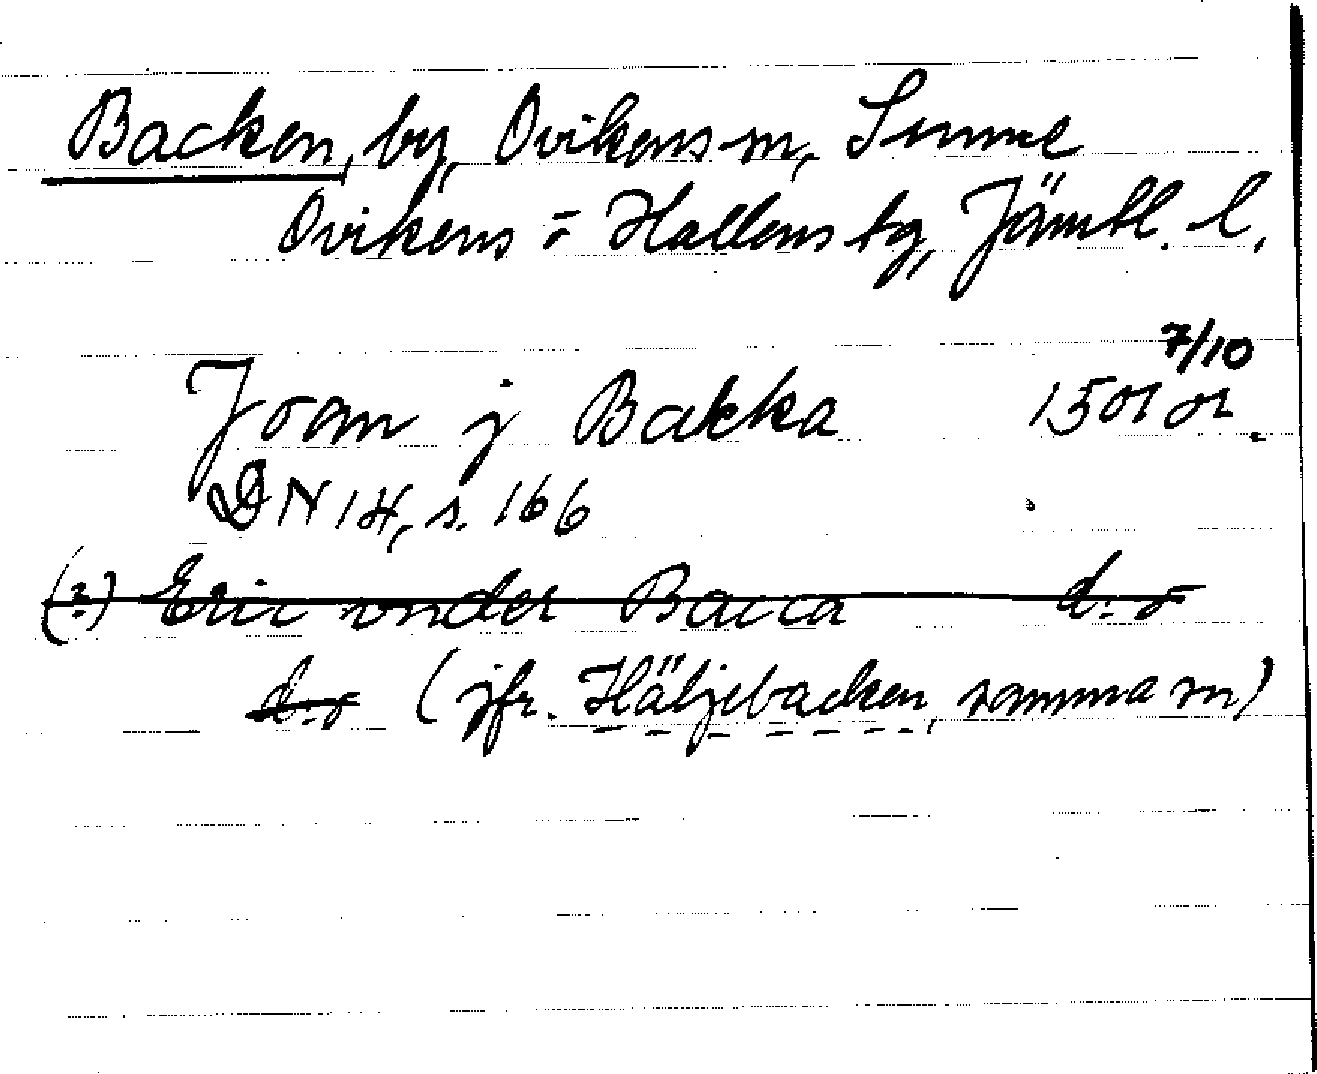 Backen, by, Ovikens sn, Sunne
Ovikens o Hallens tg, Jämtl. l.
7/10
Joan j Bakka 1501 or.
DN 14, s. 166
(?) Eric vnder Bacca d:o
d:o (jfr. Häljebacken, samma sn)